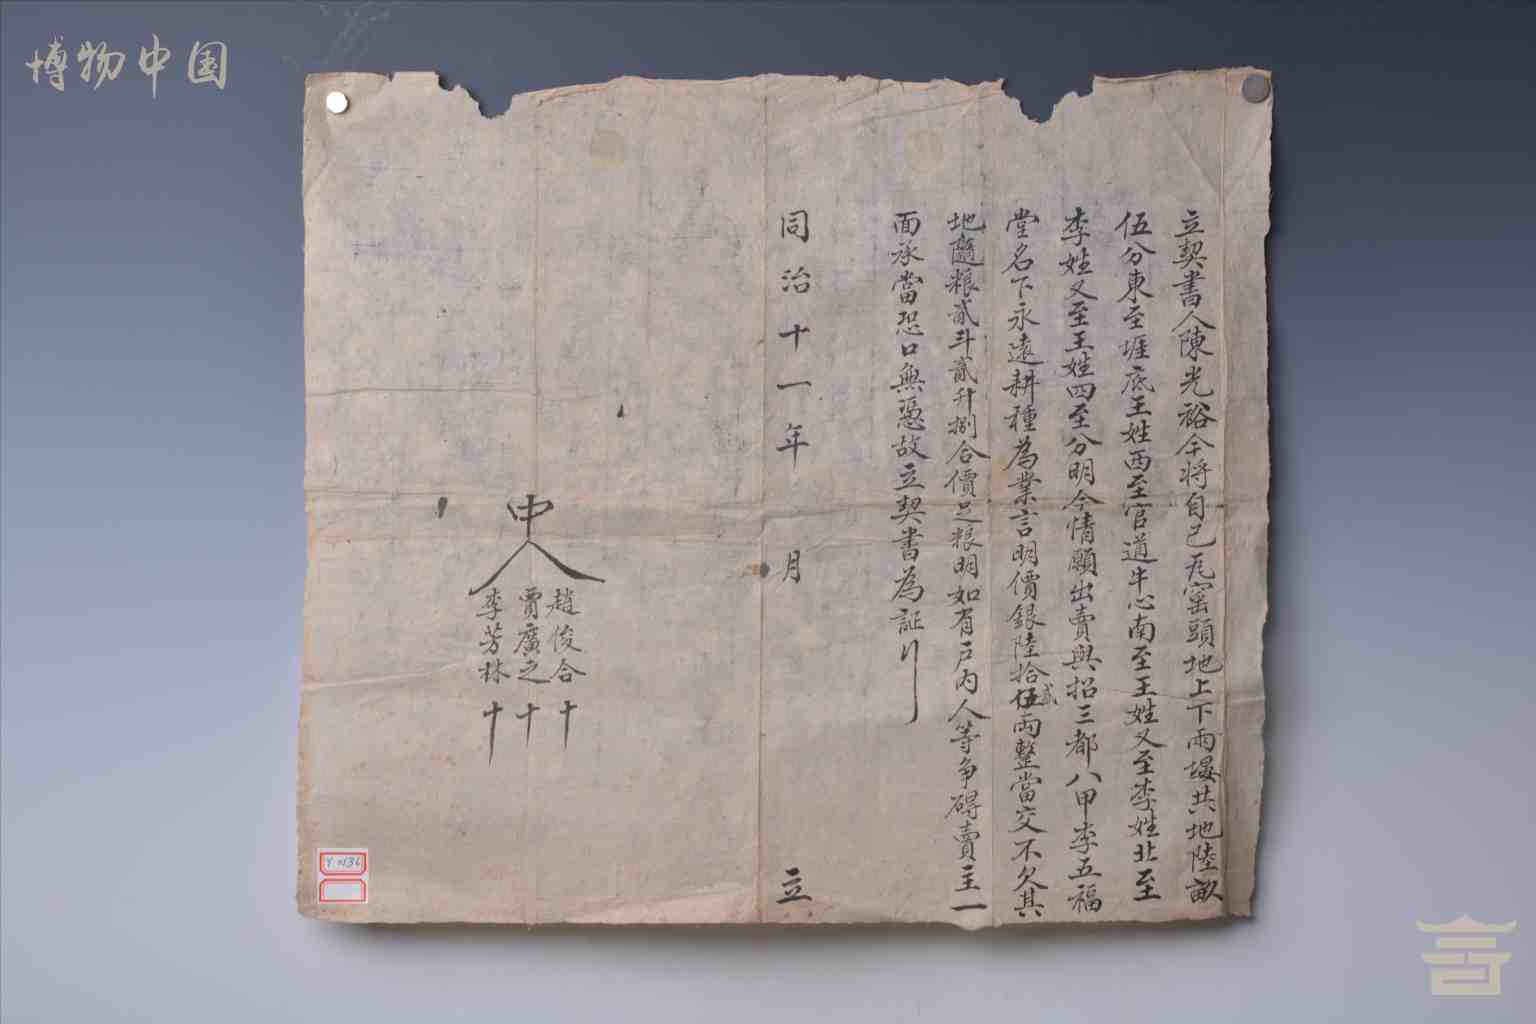 博物中国
立契書人陳光裕今將自己瓦窰頭地上下兩塅共地陸畝
伍分東至堐底王姓西至官道牛心南至王姓又至李姓北至
李姓又至王姓四至分明今情願出賣與招三都八甲李五福
堂名下永遠耕種為業言明價銀陸拾伍兩整當交不欠其
貳
地隨粮貳斗貳升捌合價足粮明如有戶內人等争碍賣主一
面承當恐口無憑故立契書為証
同治十一年 月 立
中人
趙俊合 十
賈廣之 十
李芳林 十